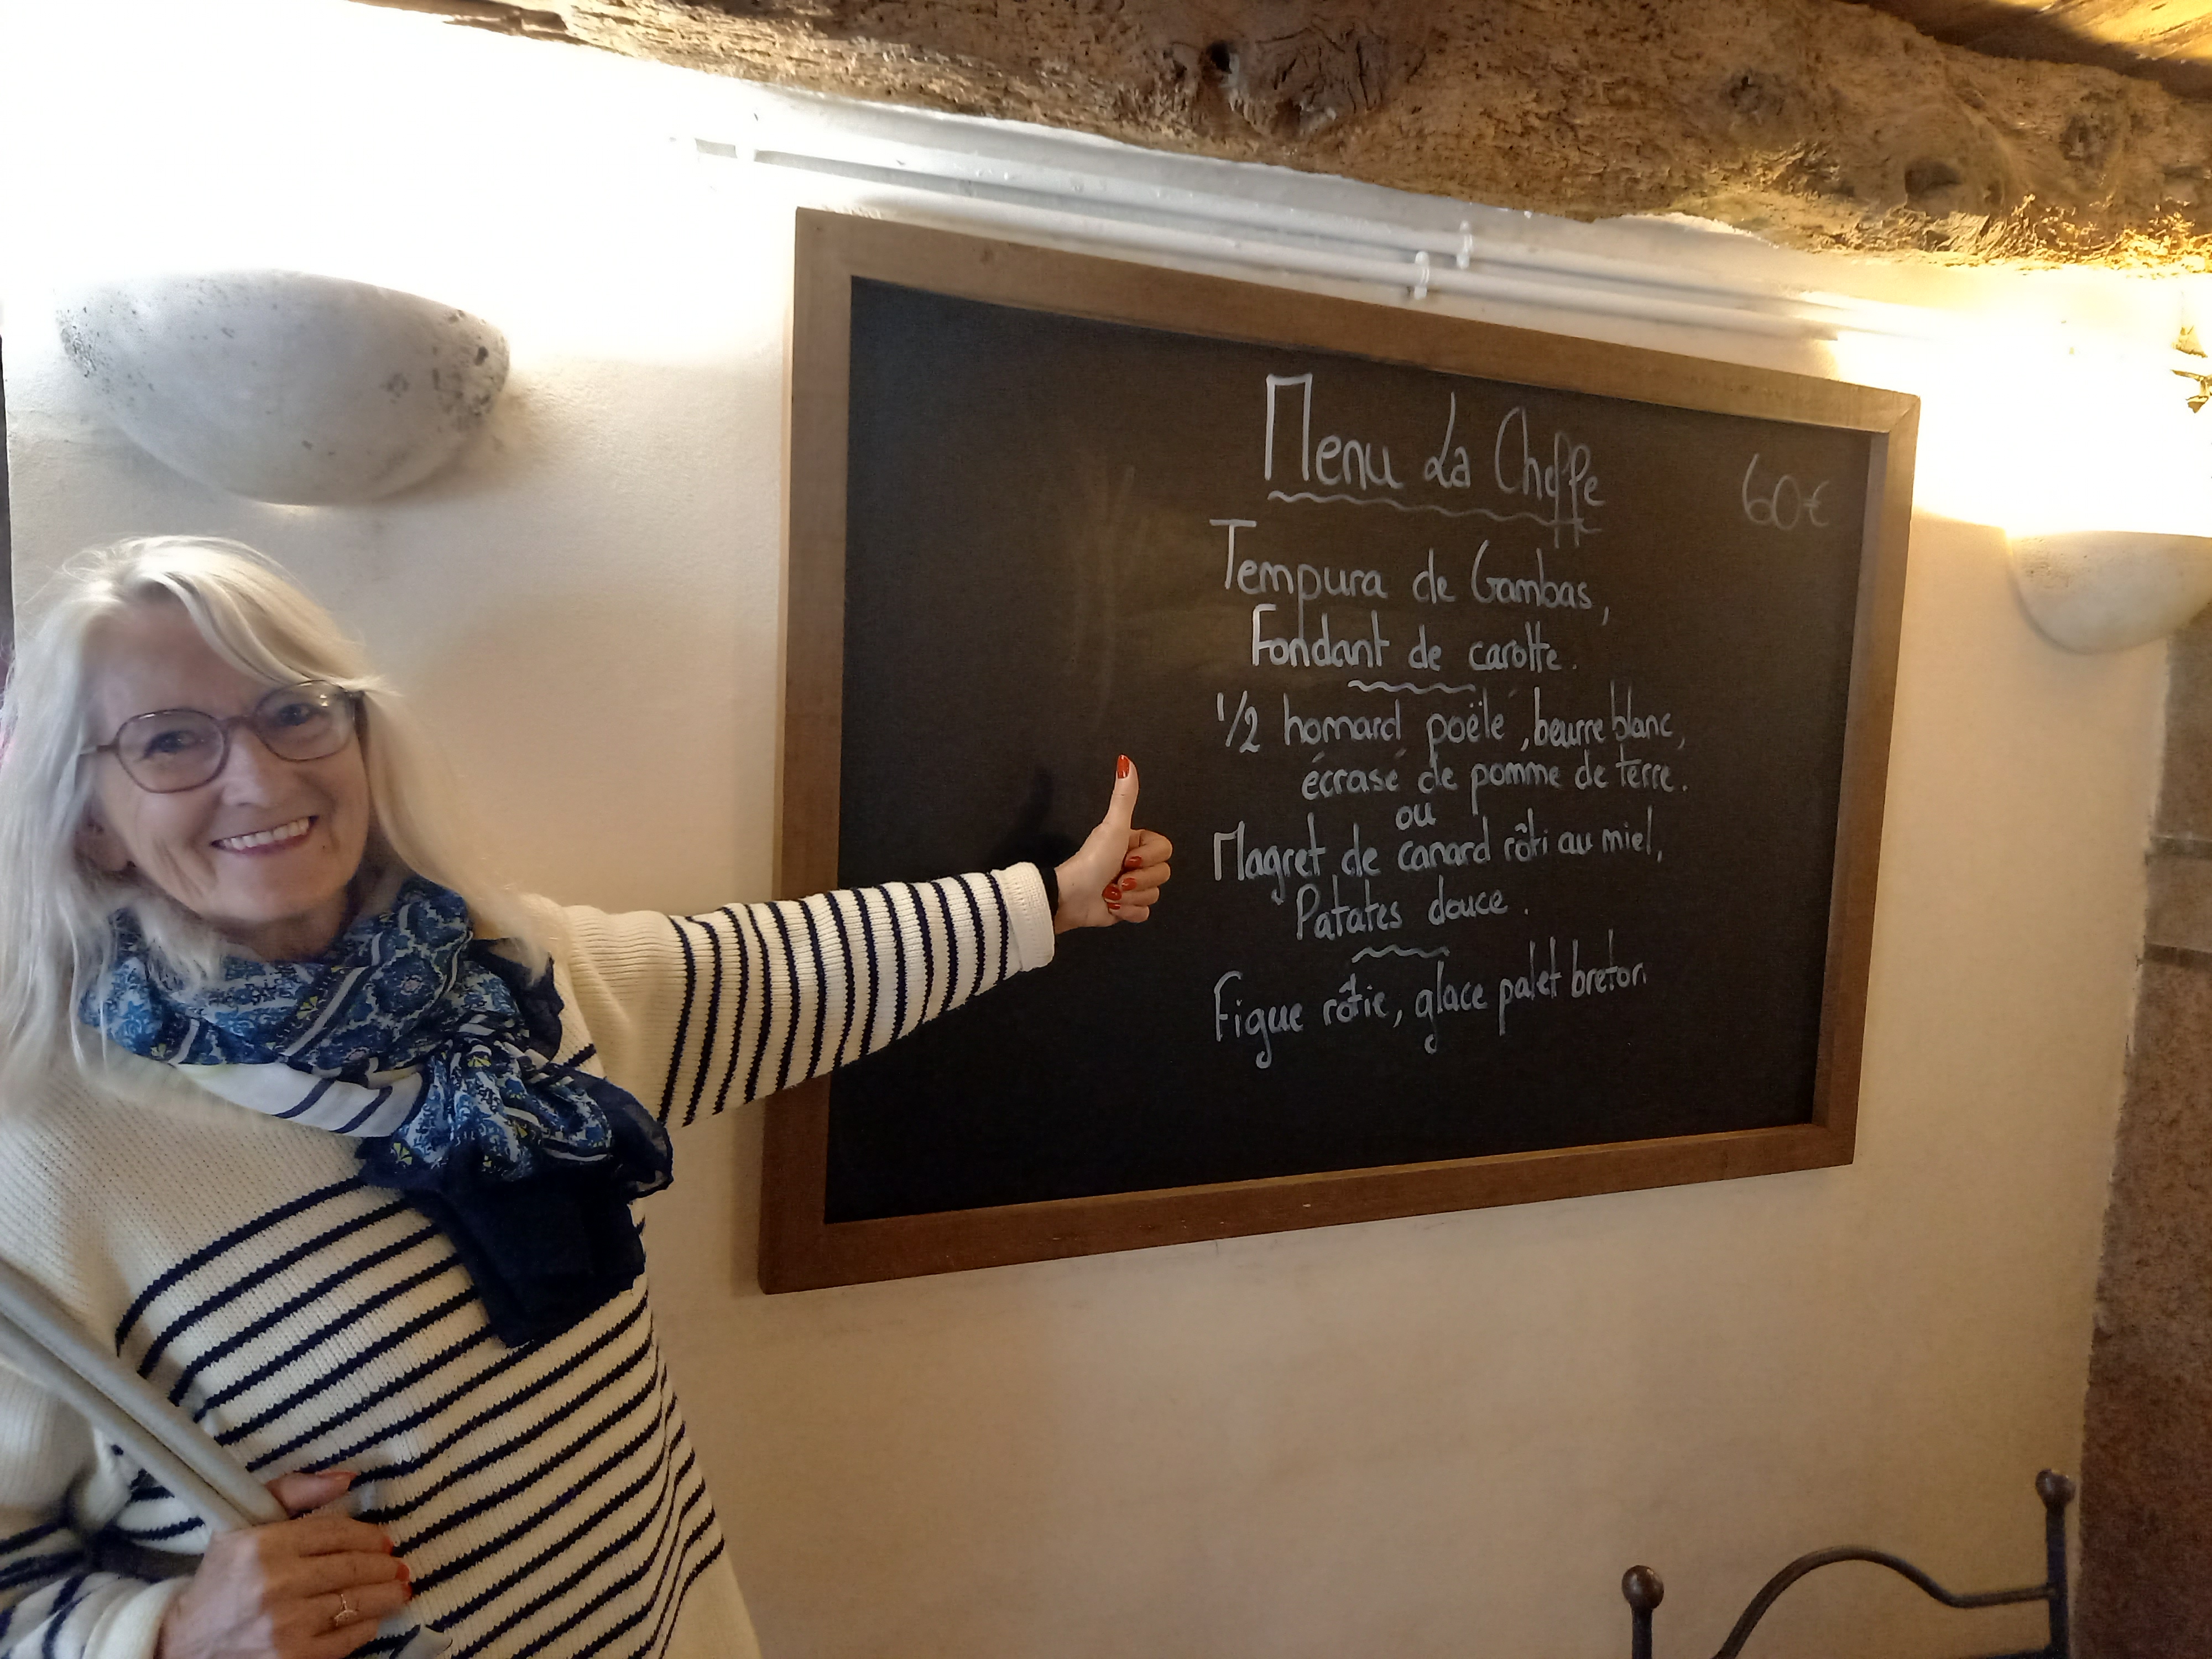 Menu La Cheffe
60€
Tempura de Gambas,
Fondant de carotte.
1/2 homard poëlé, beurre blanc,
écrasé de pomme de terre.
ou
Magret de canard rôti au miel,
Patates douce.
Figue rôtie, glace palet breton